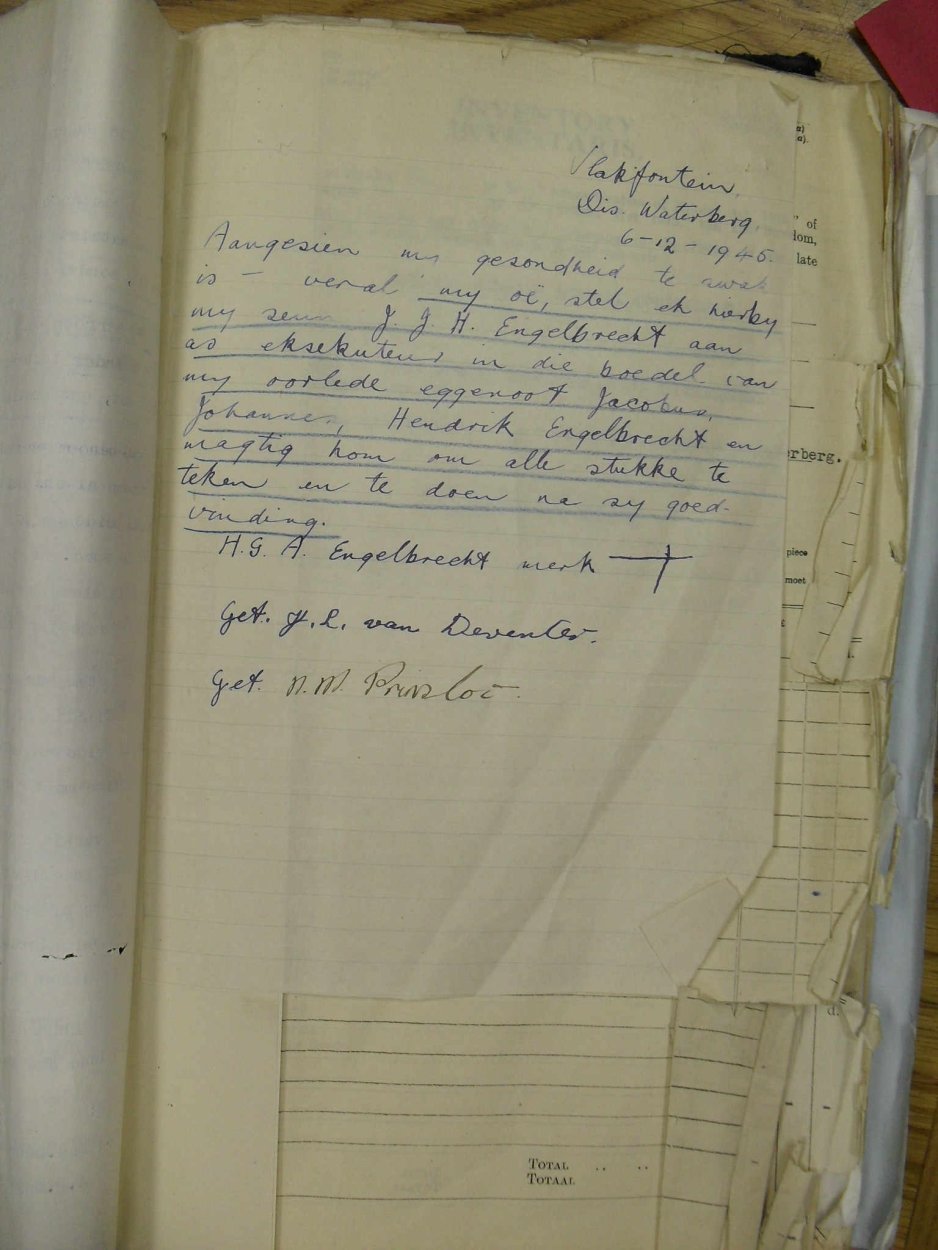 Vlakfontein,
Dis. Waterberg,
6-12-1945.
Aangesien my gesondheid te swak
is - veral my oë, stel ek hierby
my seun J. J. H. Engelbrecht aan
as eksekuteur in die boedel van
my oorlede eggenoot Jacobus,
Johannes, Hendrik Engelbrecht en
magtig hom om alle stukke te
teken en te doen na sy goed-
vinding.
H. G. A. Engelbrecht merk
Get. H. L. van Deventer.
Get. Prinsloo
INVENTORY
of
late
erberg.
piece
moet
d.
TOTAL .. ..
TOTAAL